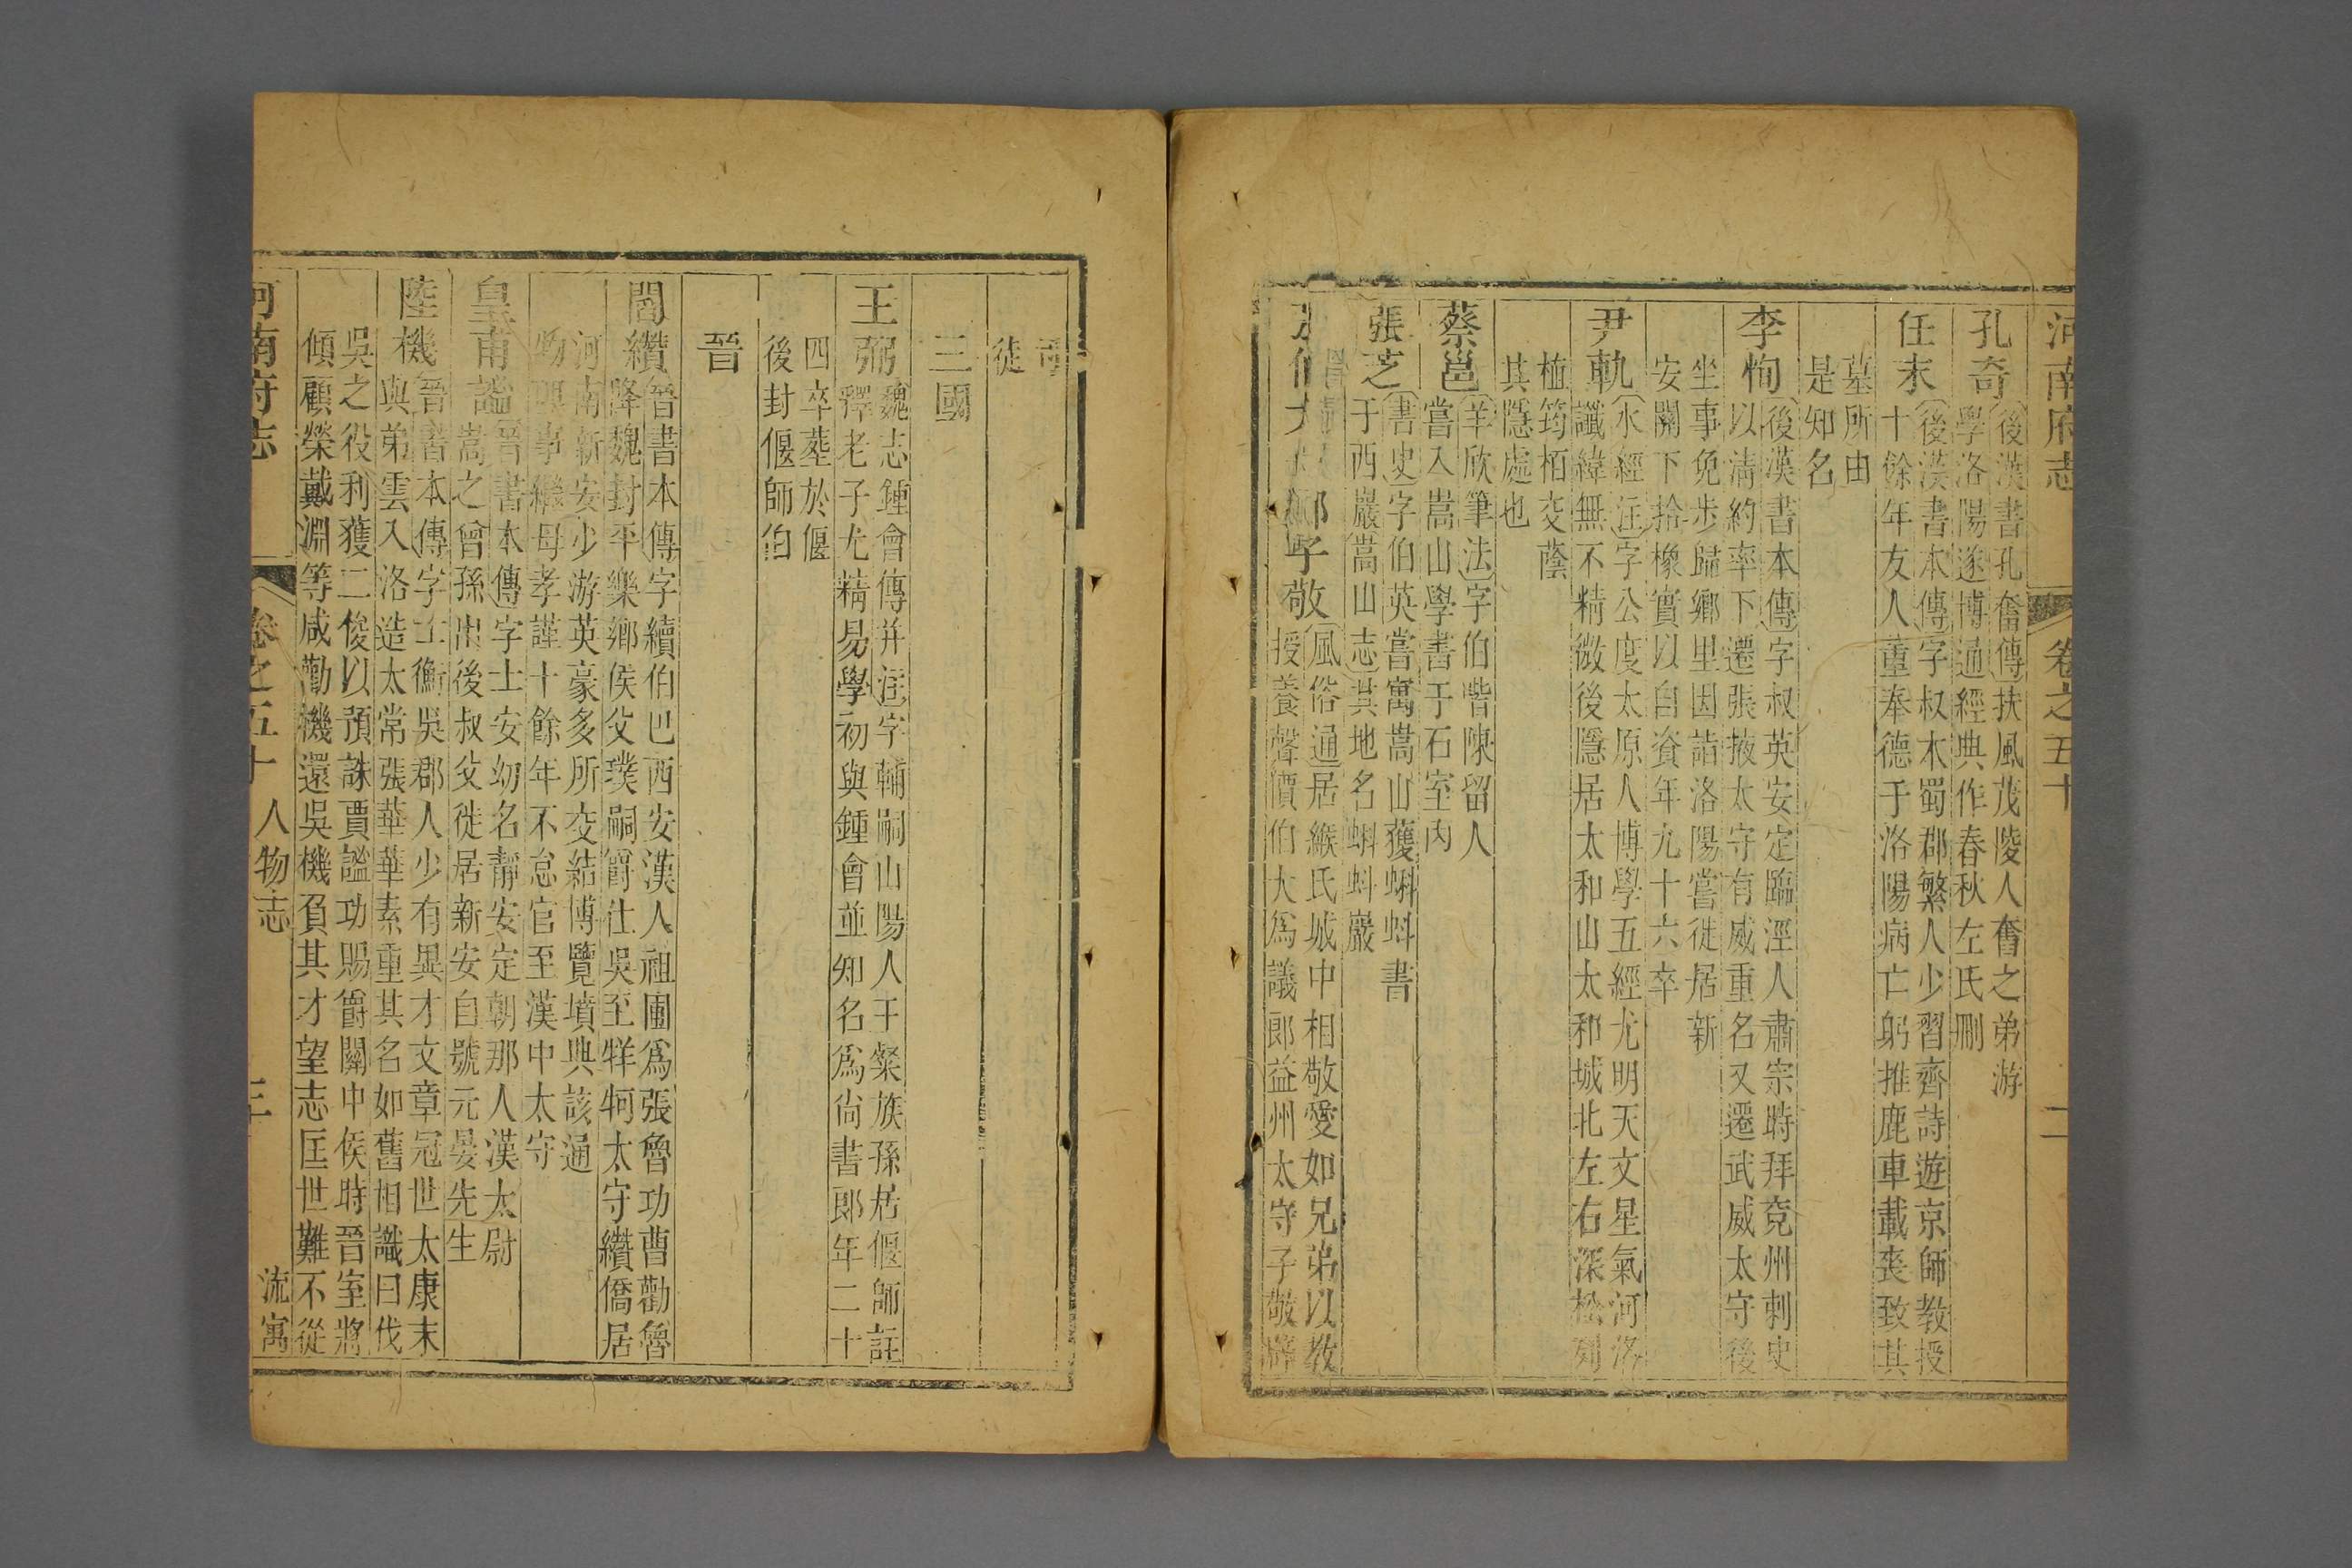 河南府志
卷之五十
二
孔奇
後漢書孔奮傳扶風茂陵人奮之弟游
學洛陽遂博通經典作春秋左氏刪
任末
後漢書本傳字叔本蜀郡繁人少習齊詩遊京師教授
十餘年友人董奉德于洛陽病亡躬推鹿車載喪致其
墓所由
是知名
李恂
後漢書本傳字叔英安定臨涇人肅宗時拜兗州刺史
以清約率下遷張掖太守有威重名又遷武威太守後
坐事免步歸鄉里因詣洛陽嘗徙居新
安關下拾橡實以自資年九十六卒
尹軌
水經注字公度太原人博學五經尤明天文星氣河洛
讖緯無不精微後隱居太和山太和城北左右深松列
植筠栢交蔭
其隱處也
蔡邕
羊欣筆法字伯喈陳留人
嘗入嵩山學書于石室內
張芝
書史字伯英嘗寓嵩山獲蝌蚪書
于西巖嵩山志其地名蝌蚪巖
子敬
風俗通居緱氏城中相敬愛如兄弟以教
授養聲價伯大為議郎益州太守子敬辟
司
徒
三國
王弼
魏志鍾會傳并注字輔嗣山陽人王粲族孫居偃師註
釋老子尤精易學初與鍾會並知名為尚書郎年二十
四卒塟於偃
後封偃師伯
晉
閻纘
晉書本傳字續伯巴西安漢人祖圃為張魯功曹勸魯
降魏封平樂鄉侯父璞嗣爵仕吳至牂牁太守纘僑居
河南新安少游英豪多所交結博覽墳典該通
物理事繼母孝謹十餘年不怠官至漢中太守
皇甫謐
晉書本傳字士安幼名靜安定朝那人漢太尉
嵩之曾孫出後叔父徙居新安自號元晏先生
陸機
晉書本傳字士衡吳郡人少有異才文章冠世太康末
與弟雲入洛造太常張華華素重其名如舊相識曰伐
吳之役利獲二俊以預誅賈謐功賜爵關中侯時晉室將
傾顧榮戴淵等咸勸機還吳機負其才望志匡世難不從
河南府志
卷之五十
人物志
流寓
三